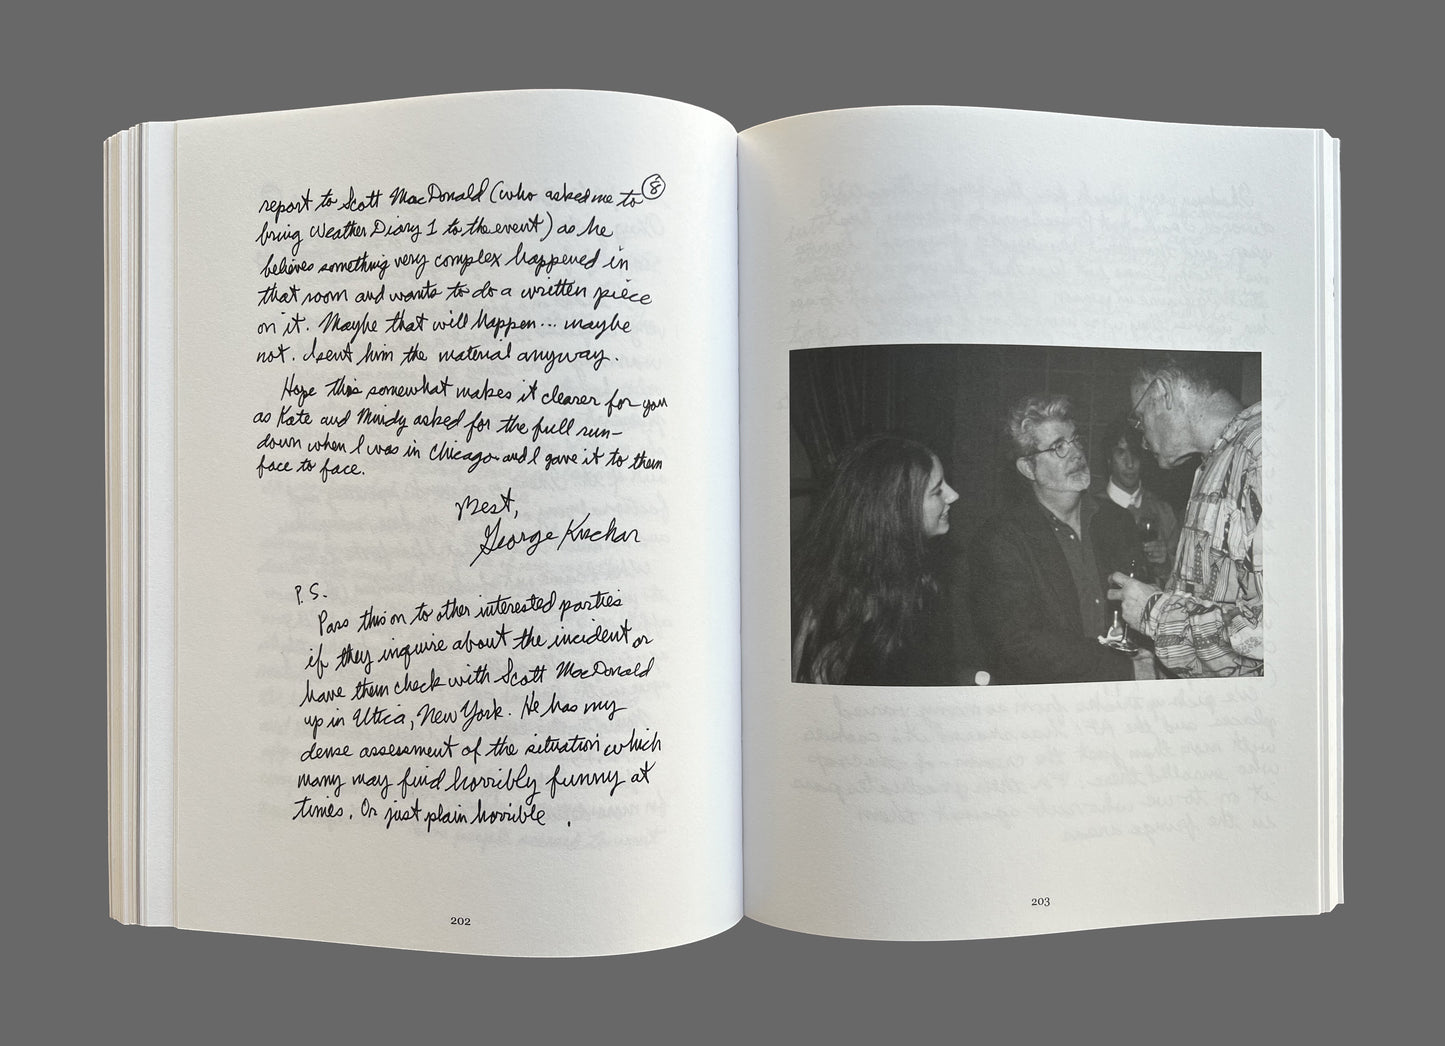 report to Scott MacDonald (who asked me to 8
bring Weather Diary 1 to the event) as he
believes something very complex happened in
that room and wants to do a written piece
on it. Maybe that will happen... maybe
not. I sent him the material anyway.
Hope this somewhat makes it clearer for you
as Kate and Mindy asked for the full run-
down when I was in Chicago and I gave it to them
face to face.
Best,
George Kuchar
P.S.
Pass this on to other interested parties
if they inquire about the incident or
have them check with Scott MacDonald
up in Utica, New York. He has my
dense assessment of the situation which
many may find horribly funny at
times. Or just plain horrible.
202
203